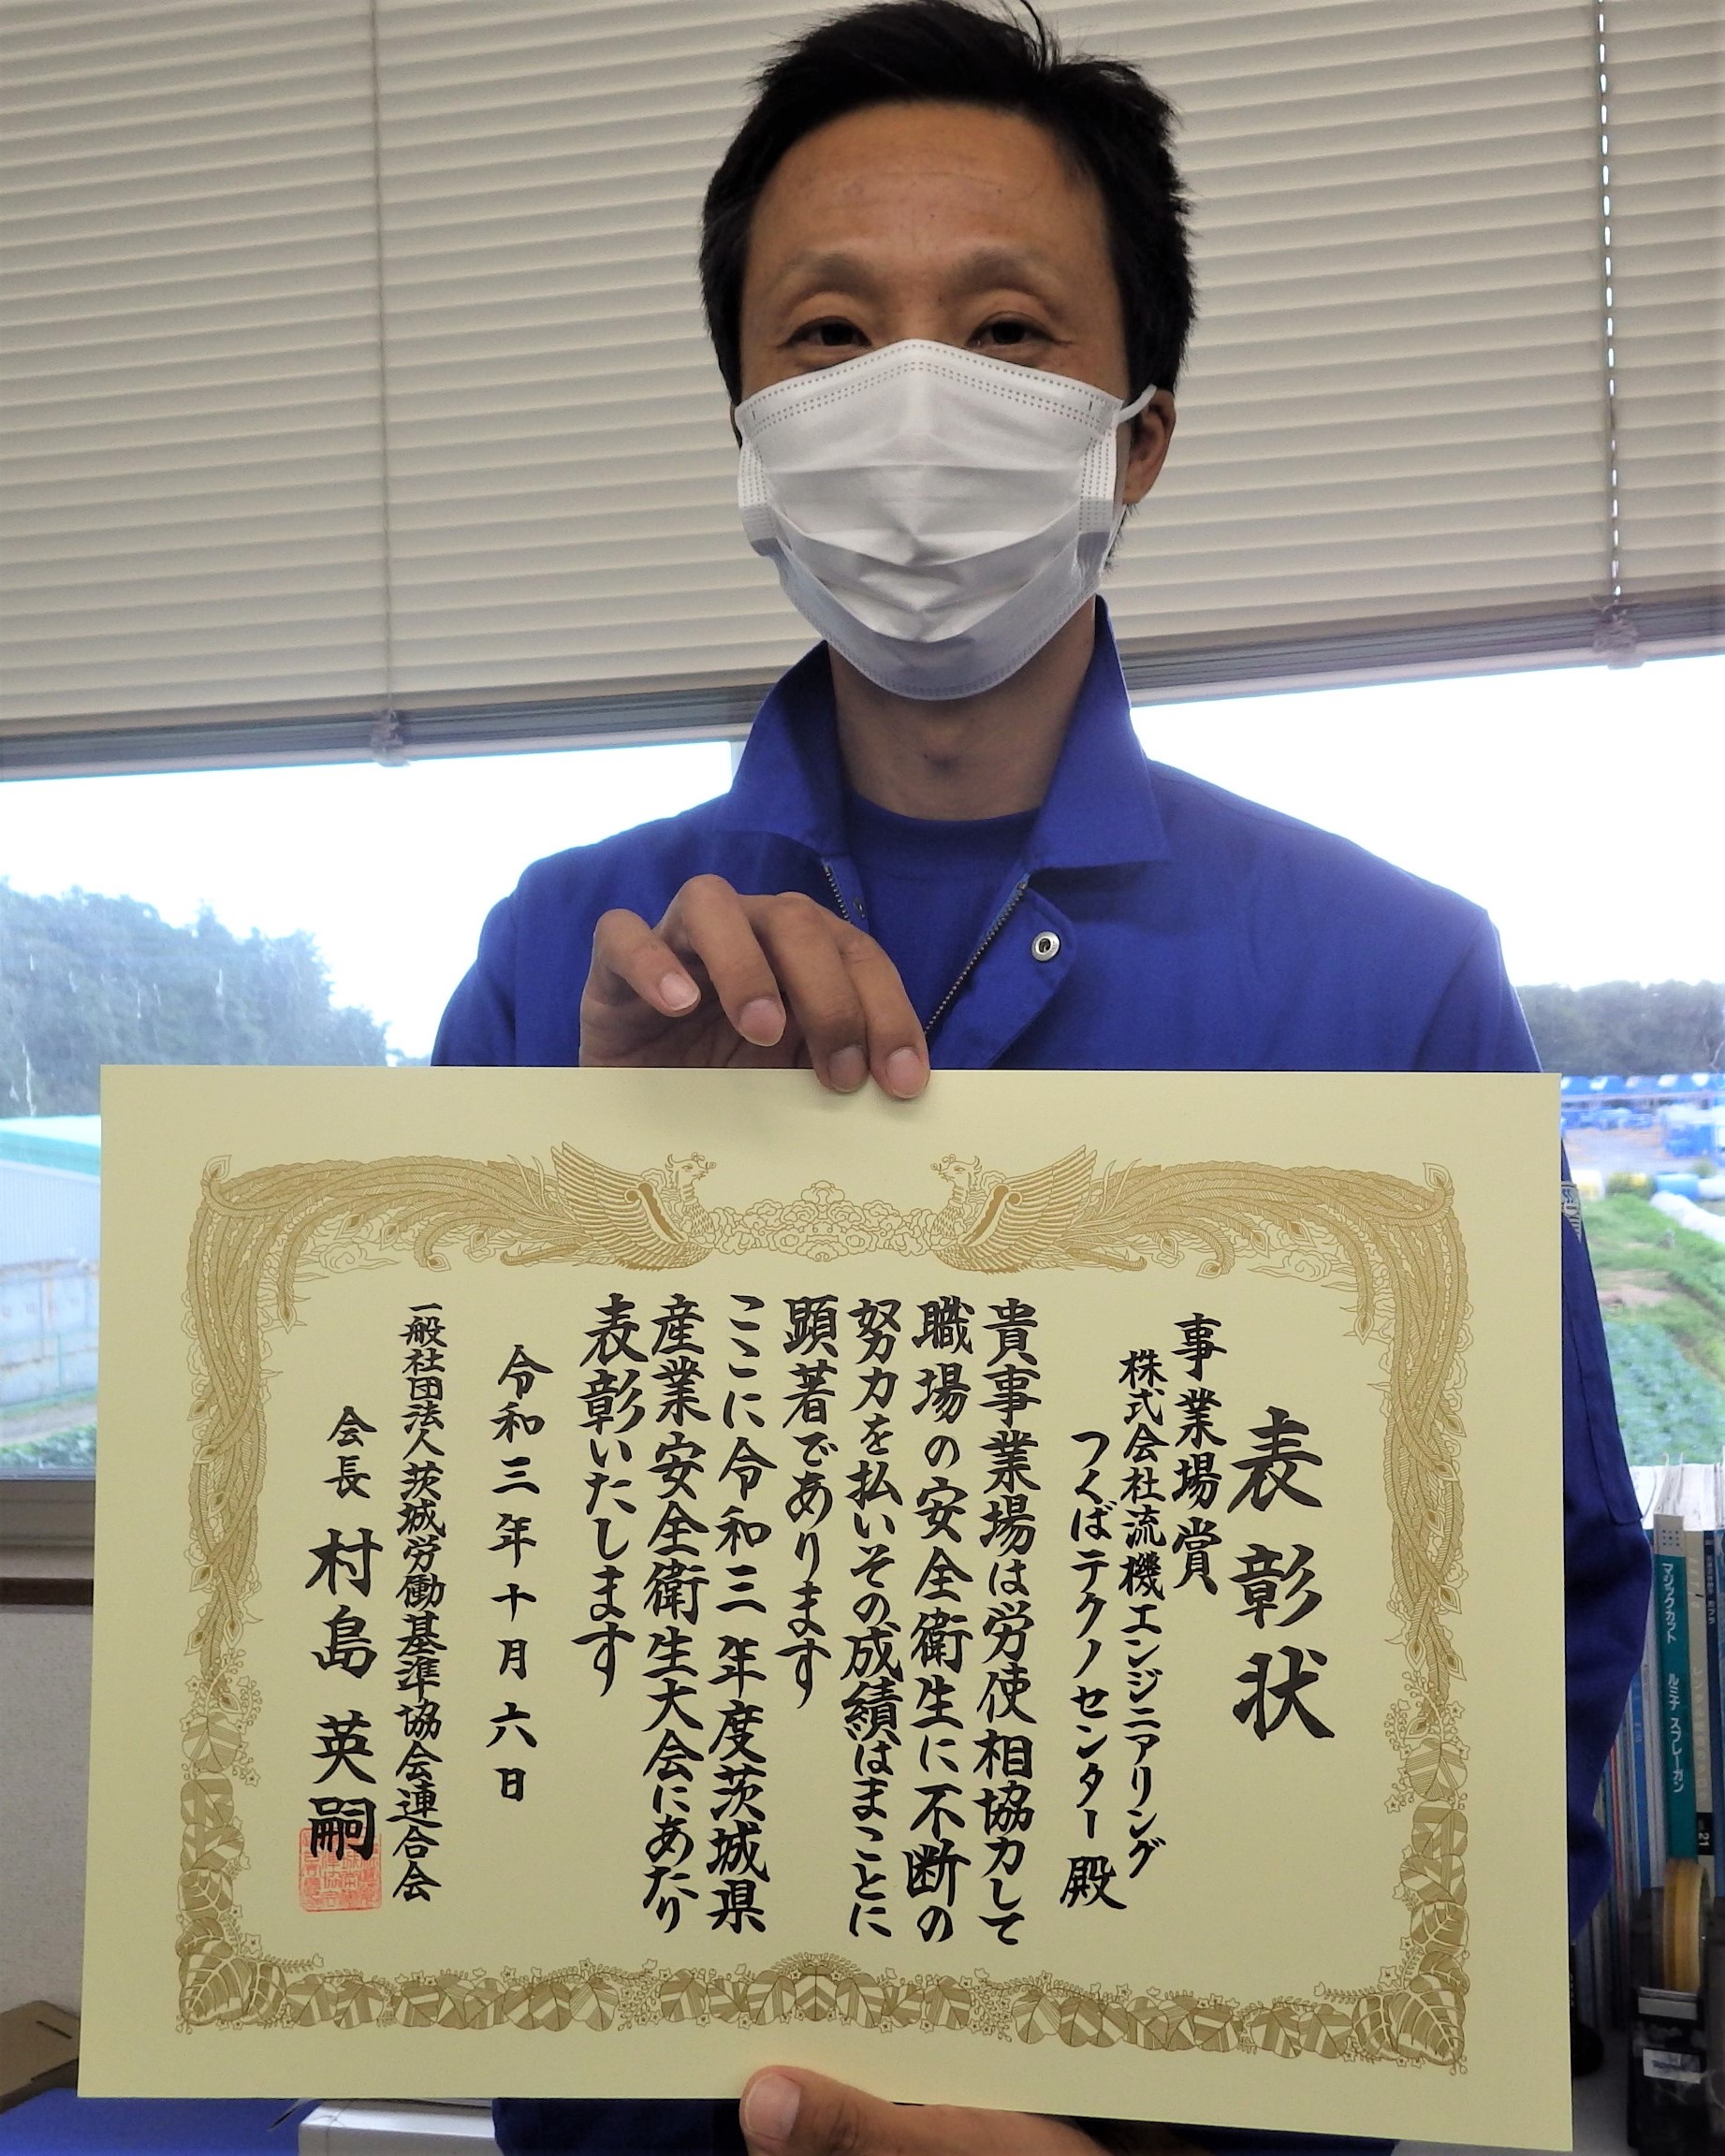 表彰状
事業場賞
株式会社流機エンジニアリング
つくばテクノセンター 殿
貴事業場は労使相協力して
職場の安全衛生に不断の
努力を払いその成績はまことに
顕著であります
ここに令和三年度茨城県
産業安全衛生大会にあたり
表彰いたします
令和三年十月六日
一般社団法人茨城労働基準協会連合会
会長 村島英嗣
マジックカット
ルミナ スプレーガン
21